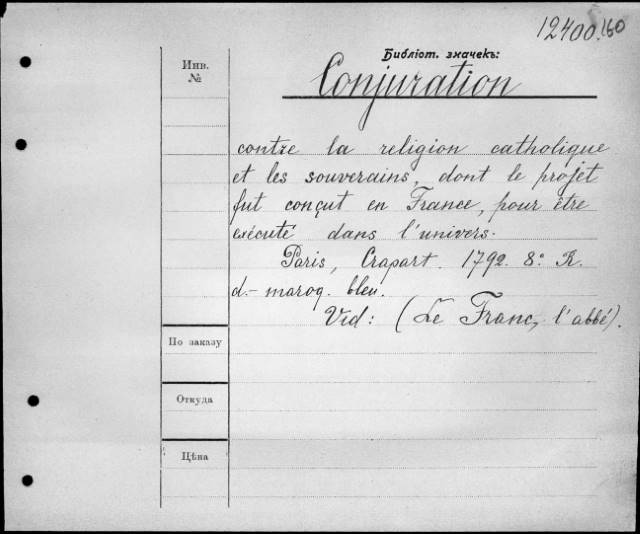 12400.160
Библіот. значекъ:
Инв.
№
Conjuration
contre la religion catholique
et les souverains, dont le projet
fut conçut en France, pour être
exécuté dans l'univers.
Paris, Crapart. 1792. 8º R.
d.- maroq. bleu.
Vid: (Le Franc, l'abbé).
По заказу
Откуда
Цѣна